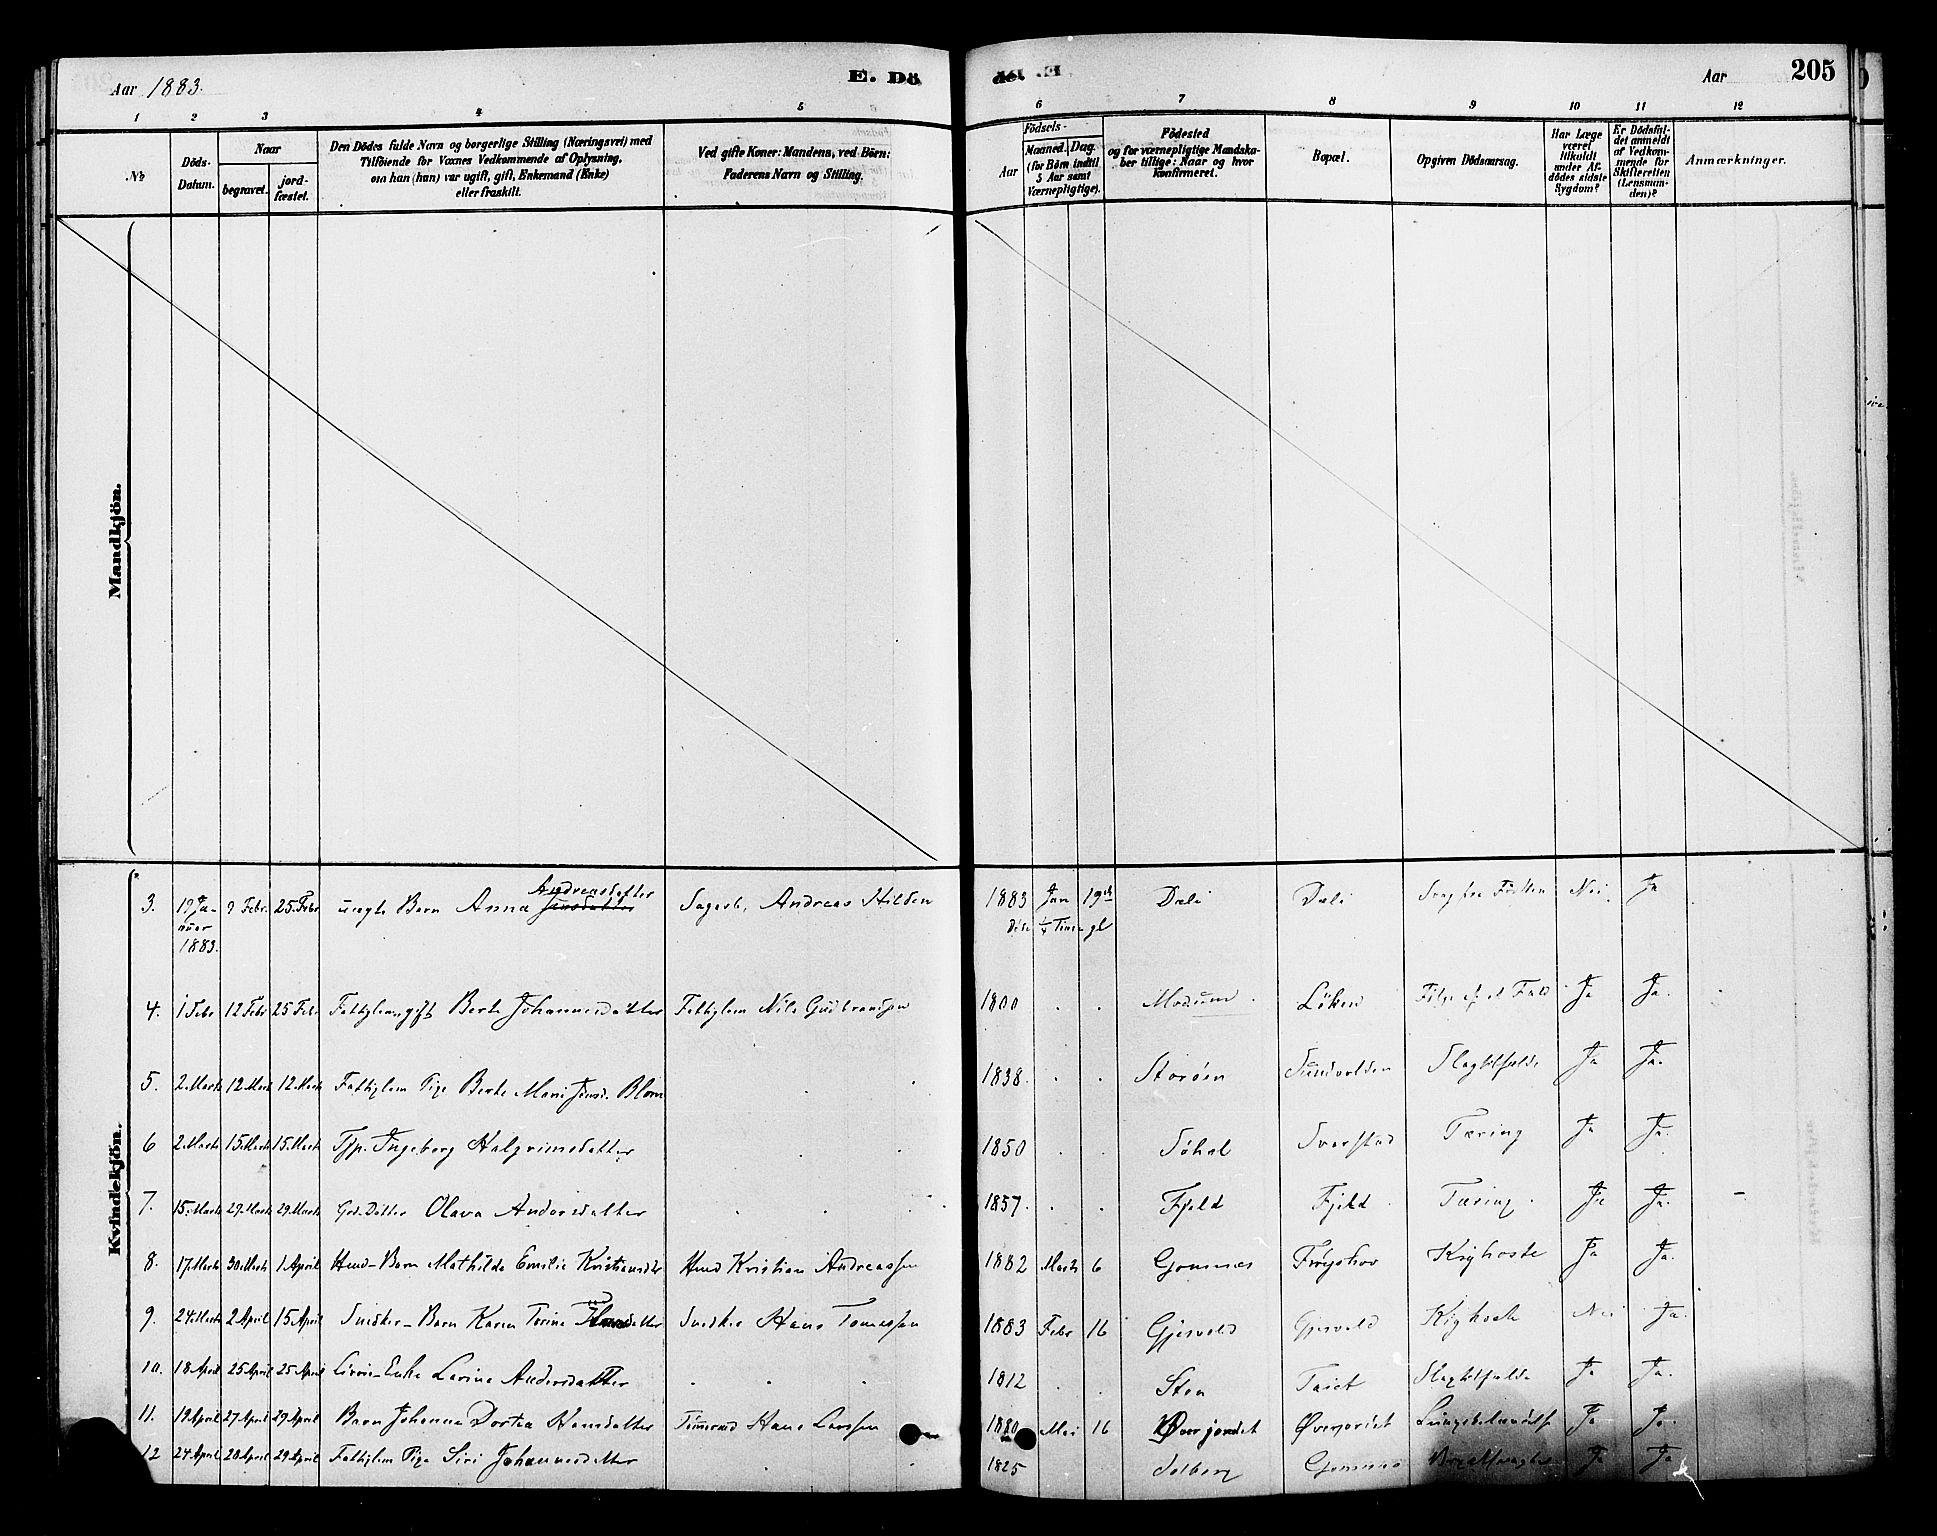 Aar 1883.
E. Dö
de. E.
Aar
205
1 2 3 4 5 6 7 8 9 10 11 12
No
Döds-
Datum.
Naar
begravet.
jord-
fæstet.
Den Dödes fulde Navn og borgerlige Stilling (Næringsvei) med
Tilföiende for Voxnes Vedkommende af Oplysning,
om han (hun) var ugift, gift, Enkemand (Enke)
eller fraskilt.
Ved gifte Koner: Mandens, ved Börn:
Faderens Navn og Stilling.
Födsels-
Aar
Maaned. Dag.
(for Börn indtil
5 Aar samt
Værnepligtige).
Födested
og for værnepligtige Mandska-
ber tillige: Naar og hvor
konfirmeret.
Bopæl.
Opgiven Dödsaarsag.
Har Læge
været
tilkaldt
under Af-
dödes sidste
Sygdom?
Er Dödsfal-
det anmeldt
af Vedkom-
mende for
Skifteretten
(Lensman-
den)?
Anmærkninger.
Mandkjön.
Kvindekjön.
Andreasdatter
3. 19 Ja- 9 Febr. 25. Febr uægte Barn Anna Andreas Hilden 1883 Jan 19 Dæli Dæli Nei. Ja
nuar
1883.
4. 1 Febr 12 Febr 25 Febr Berte Johannesdatter Nils Gudbrandsen 1800 Modum Löken Ja Ja.
5. 2. Marts 12. Marts 12. Marts Fattiglem Pige Berte Mari Blom 1838. Storöen Sundvolden Slagtilfælde Ja Ja.
6 2. Marts 15. Marts 15. Marts Ingeborg Halgrimsdatter 1850 Söhol Svarstad Tæring Ja Ja.
7. 15. Marts 29. Marts 29. Marts Datter Olava Andersdatter 1857. Fjeld Fjeld Tæring. Ja Ja.
8. 17. Marts 30. Marts 1 April Barn Mathilde Emilie Kristiansdtr Kristian Andreassen 1882 Marts 6 Gomnæs Fröyshov Kighoste Ja Ja.
9. 24. Marts 2 April 15 April Snedker-Barn Karen Torine Snedker Hans Tomassen 1883 Febr 16 Gjesvold Gjesvold Kighoste Nei Ja.
10. 18 April 25 April 25 April Enke Larine Andersdatter 1812 Sten Slagtilfælde Ja Ja.
11. 19 April 27 April 29 April Barn Johanna Dortea Hansdatter Hans Larsen 1880 Mai 16 Överjordet Överjordet Ja Ja.
12 24 April 28 April 29 April Fattiglem Pige Siri Johannesdatter 1825 Solberg Gomnæs Ja Ja